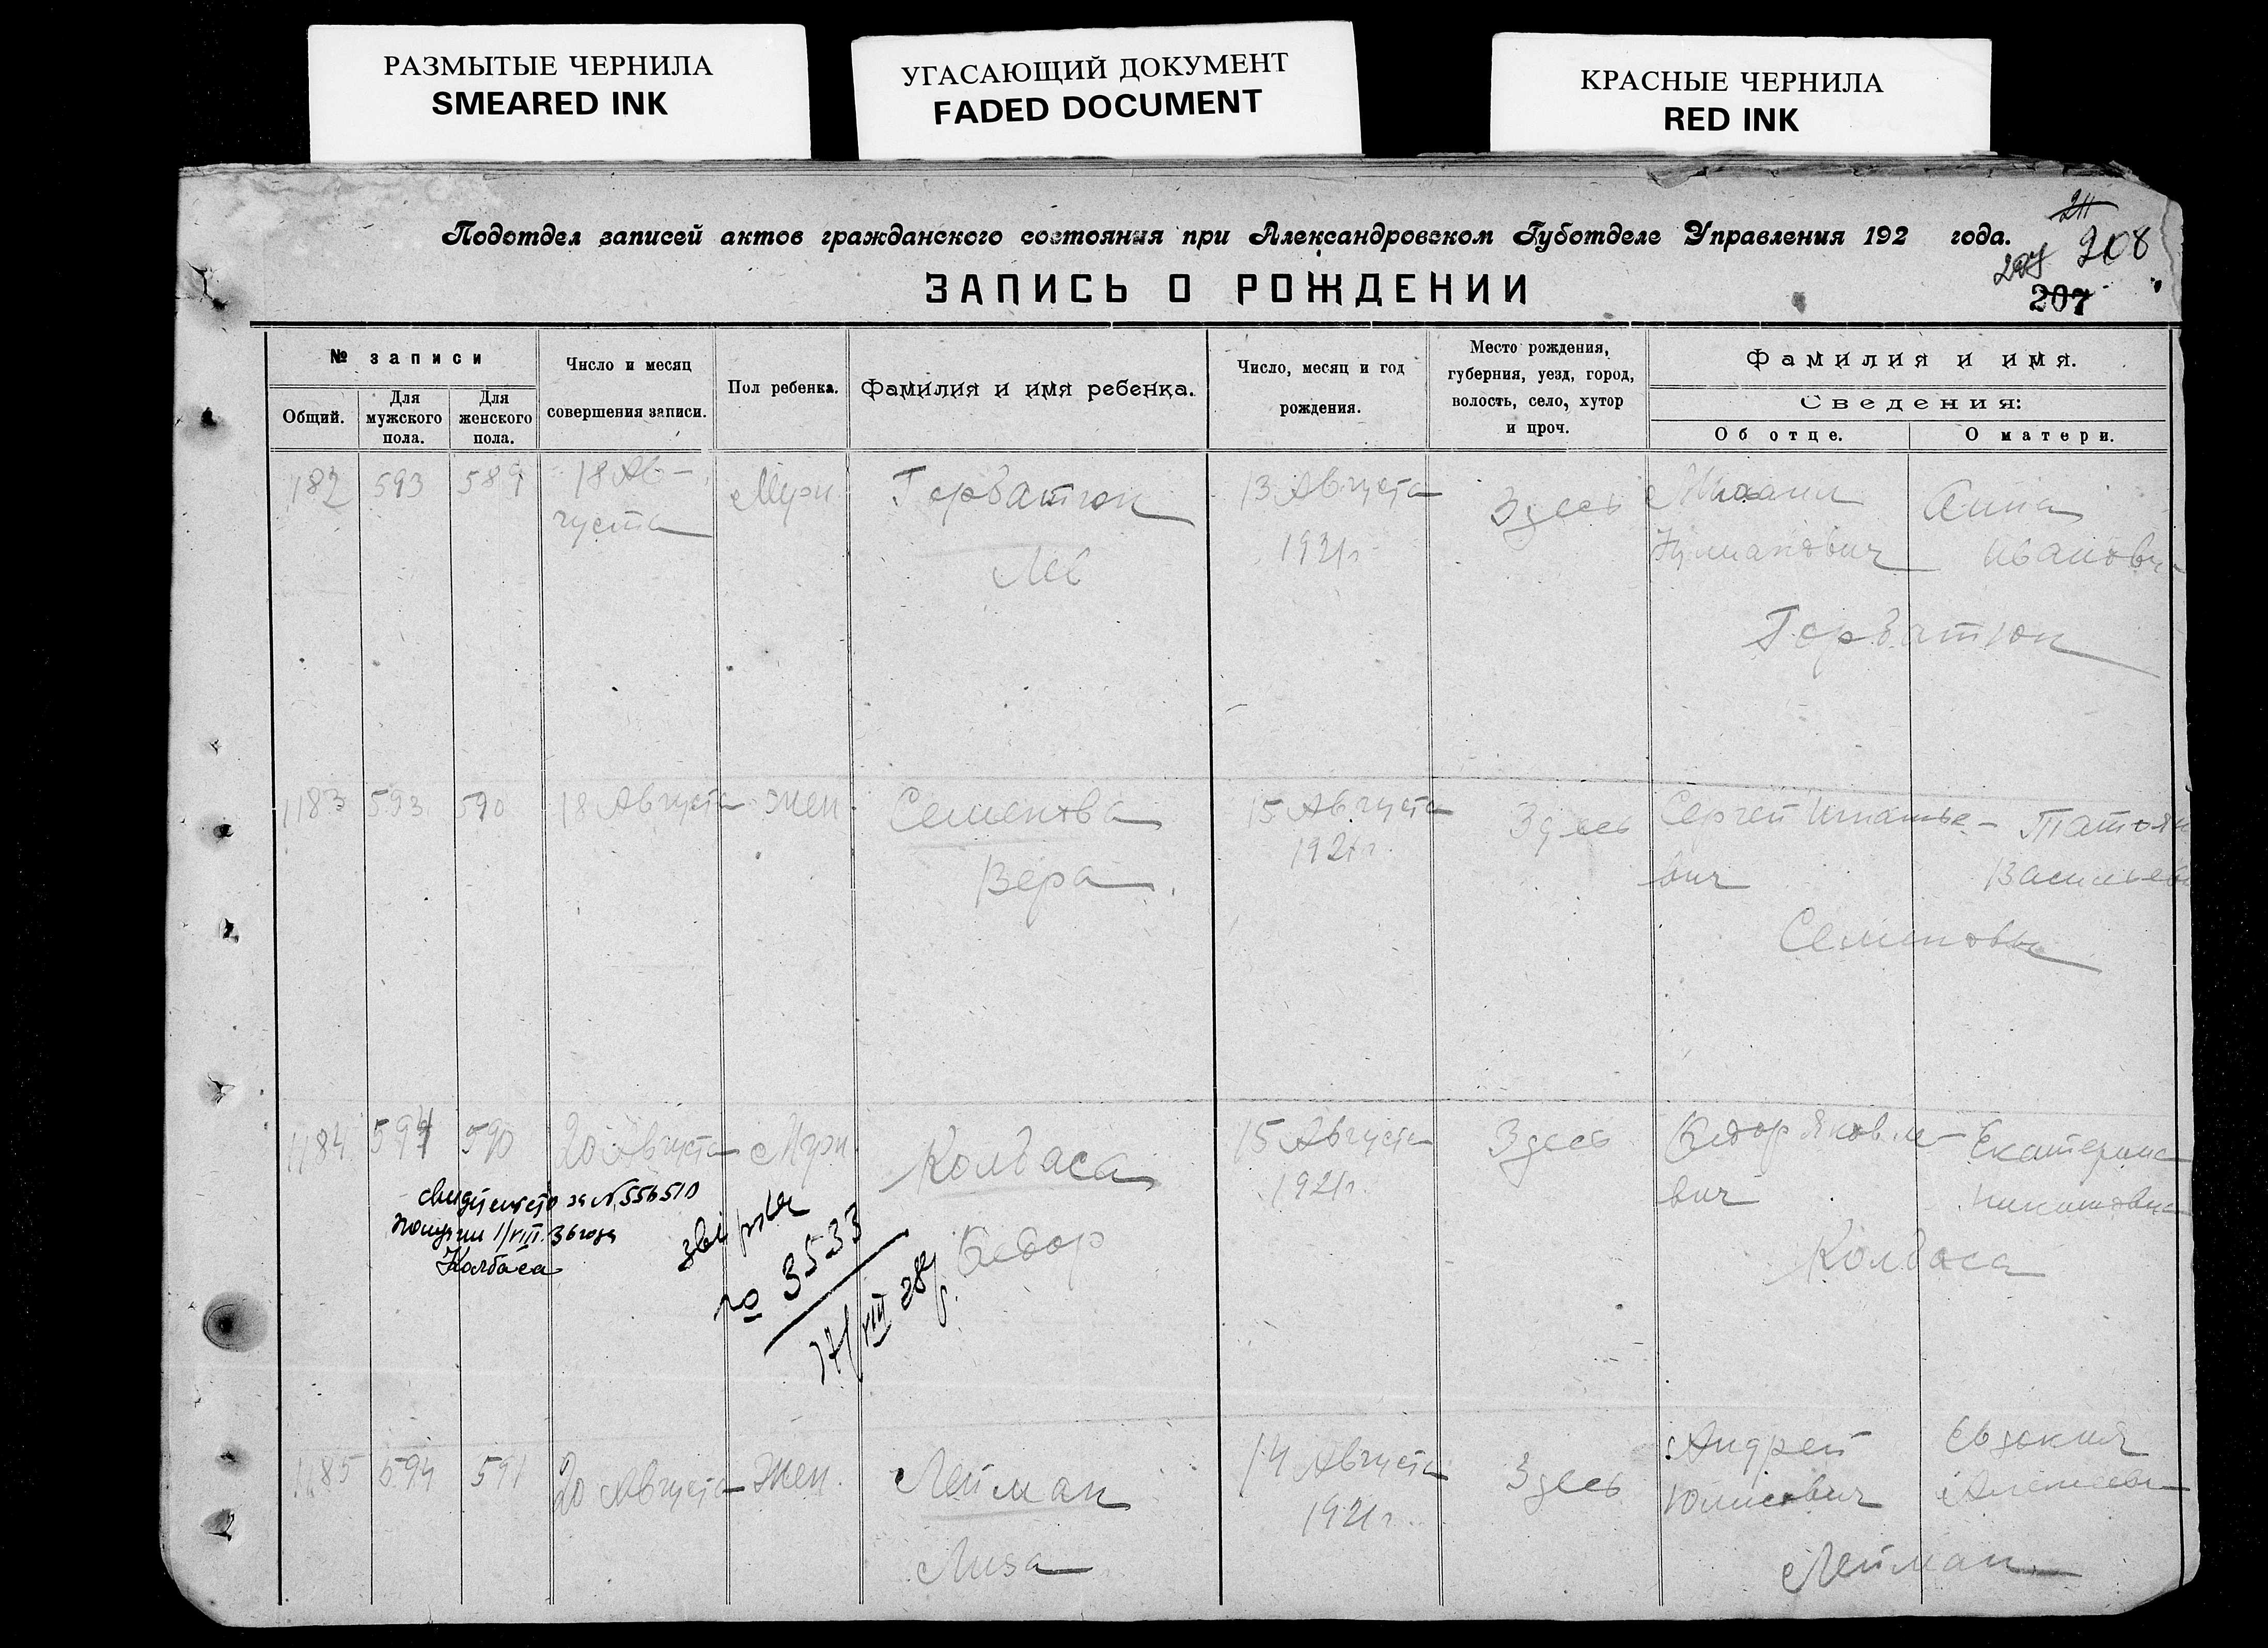 РАЗМЫТЫЕ ЧЕРНИЛА
SMEARED INK
УГАСАЮЩИЙ ДОКУМЕНТ
FADED DOCUMENT
КРАСНЫЕ ЧЕРНИЛА
RED INK
Подотдел записей актов гражданского состояния при Александровском Губотделе Управления 192 года.
211
208
207
ЗАПИСЬ О РОЖДЕНИИ
№ записи
Общий.
Для мужского пола.
Для женского пола.
Число и месяц
совершения записи.
Пол ребенка.
Фамилия и имя ребенка.
Число, месяц и год
рождения.
Место рождения,
губерния, уезд, город,
волость, село, хутор
и проч.
Фамилия и имя.
Сведения:
Об отце.
О матери.
182 593 589 18 Ав-
густа
Муж.
Горбатюк
Лев
13 Августа
1921 г.
Здесь
Михаил
Анна
Иванов
Горбатюк
1183 593 590 18 Августа Жен.
Семенова
Вера.
15 Августа
1921 г.
Здесь
Сергей Игнатье-
вич
Татьян
Васильев
Семеновы
1184 594 590 20 Августа Муж.
Колбаса
Федор
15 Августа
1921 г.
Здесь
Федор Яковле-
вич
Екатерина
Никитовна
Колбаса
за № 556510
1/VIII 36 года
Колбаса
№ 3533
17/VIII 28 г.
1185 594 591 20 Августа Жен.
Лейман
Лиза
14 Августа
1921 г.
Здесь
Андрей
Евдокия
Алексеев
Лейман